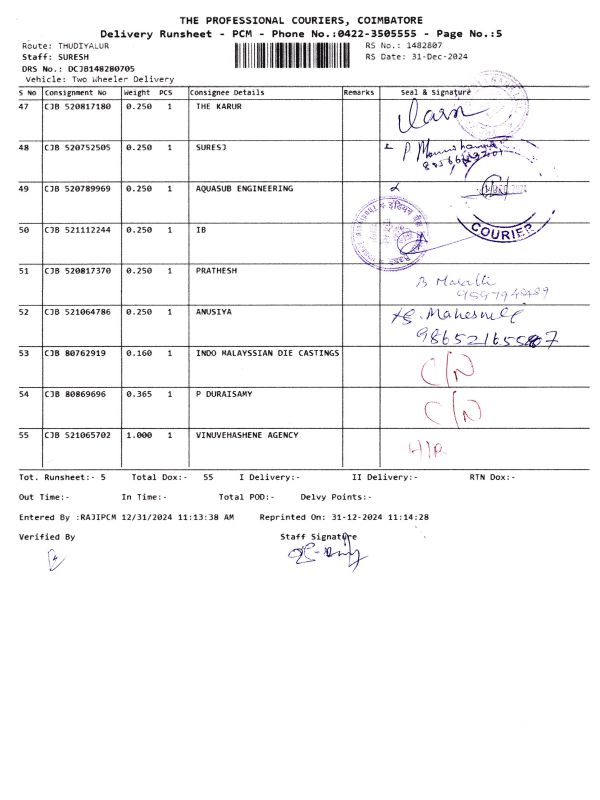 THE PROFESSIONAL COURIERS, COIMBATORE
Delivery Runsheet - PCM - Phone No.:0422-3505555 - Page No.:5
Route: THUDIYALUR RS No.: 1482807
Staff: SURESH RS Date: 31-Dec-2024
DRS No.: DCJB148280705
Vehicle: Two Wheeler Delivery
S No Consignment No Weight PCS Consignee Details Remarks Seal & Signature
47 CJB 520817180 0.250 1 THE KARUR
48 CJB 520752505 0.250 1 SURESJ
49 CJB 520789969 0.250 1 AQUASUB ENGINEERING
50 CJB 521112244 0.250 1 IB COURIER
51 CJB 520817370 0.250 1 PRATHESH B Malathi
52 CJB 521064786 0.250 1 ANUSIYA
53 CJB 80762919 0.160 1 INDO MALAYSSIAN DIE CASTINGS C/N
54 CJB 80869696 0.365 1 P DURAISAMY C/N
55 CJB 521065702 1.000 1 VINUVEHASHENE AGENCY
Tot. Runsheet:- 5 Total Dox:- 55 I Delivery:- II Delivery:- RTN Dox:-
Out Time:- In Time:- Total POD:- Delvy Points:-
Entered By :RAJIPCM 12/31/2024 11:13:38 AM Reprinted On: 31-12-2024 11:14:28
Verified By Staff Signature